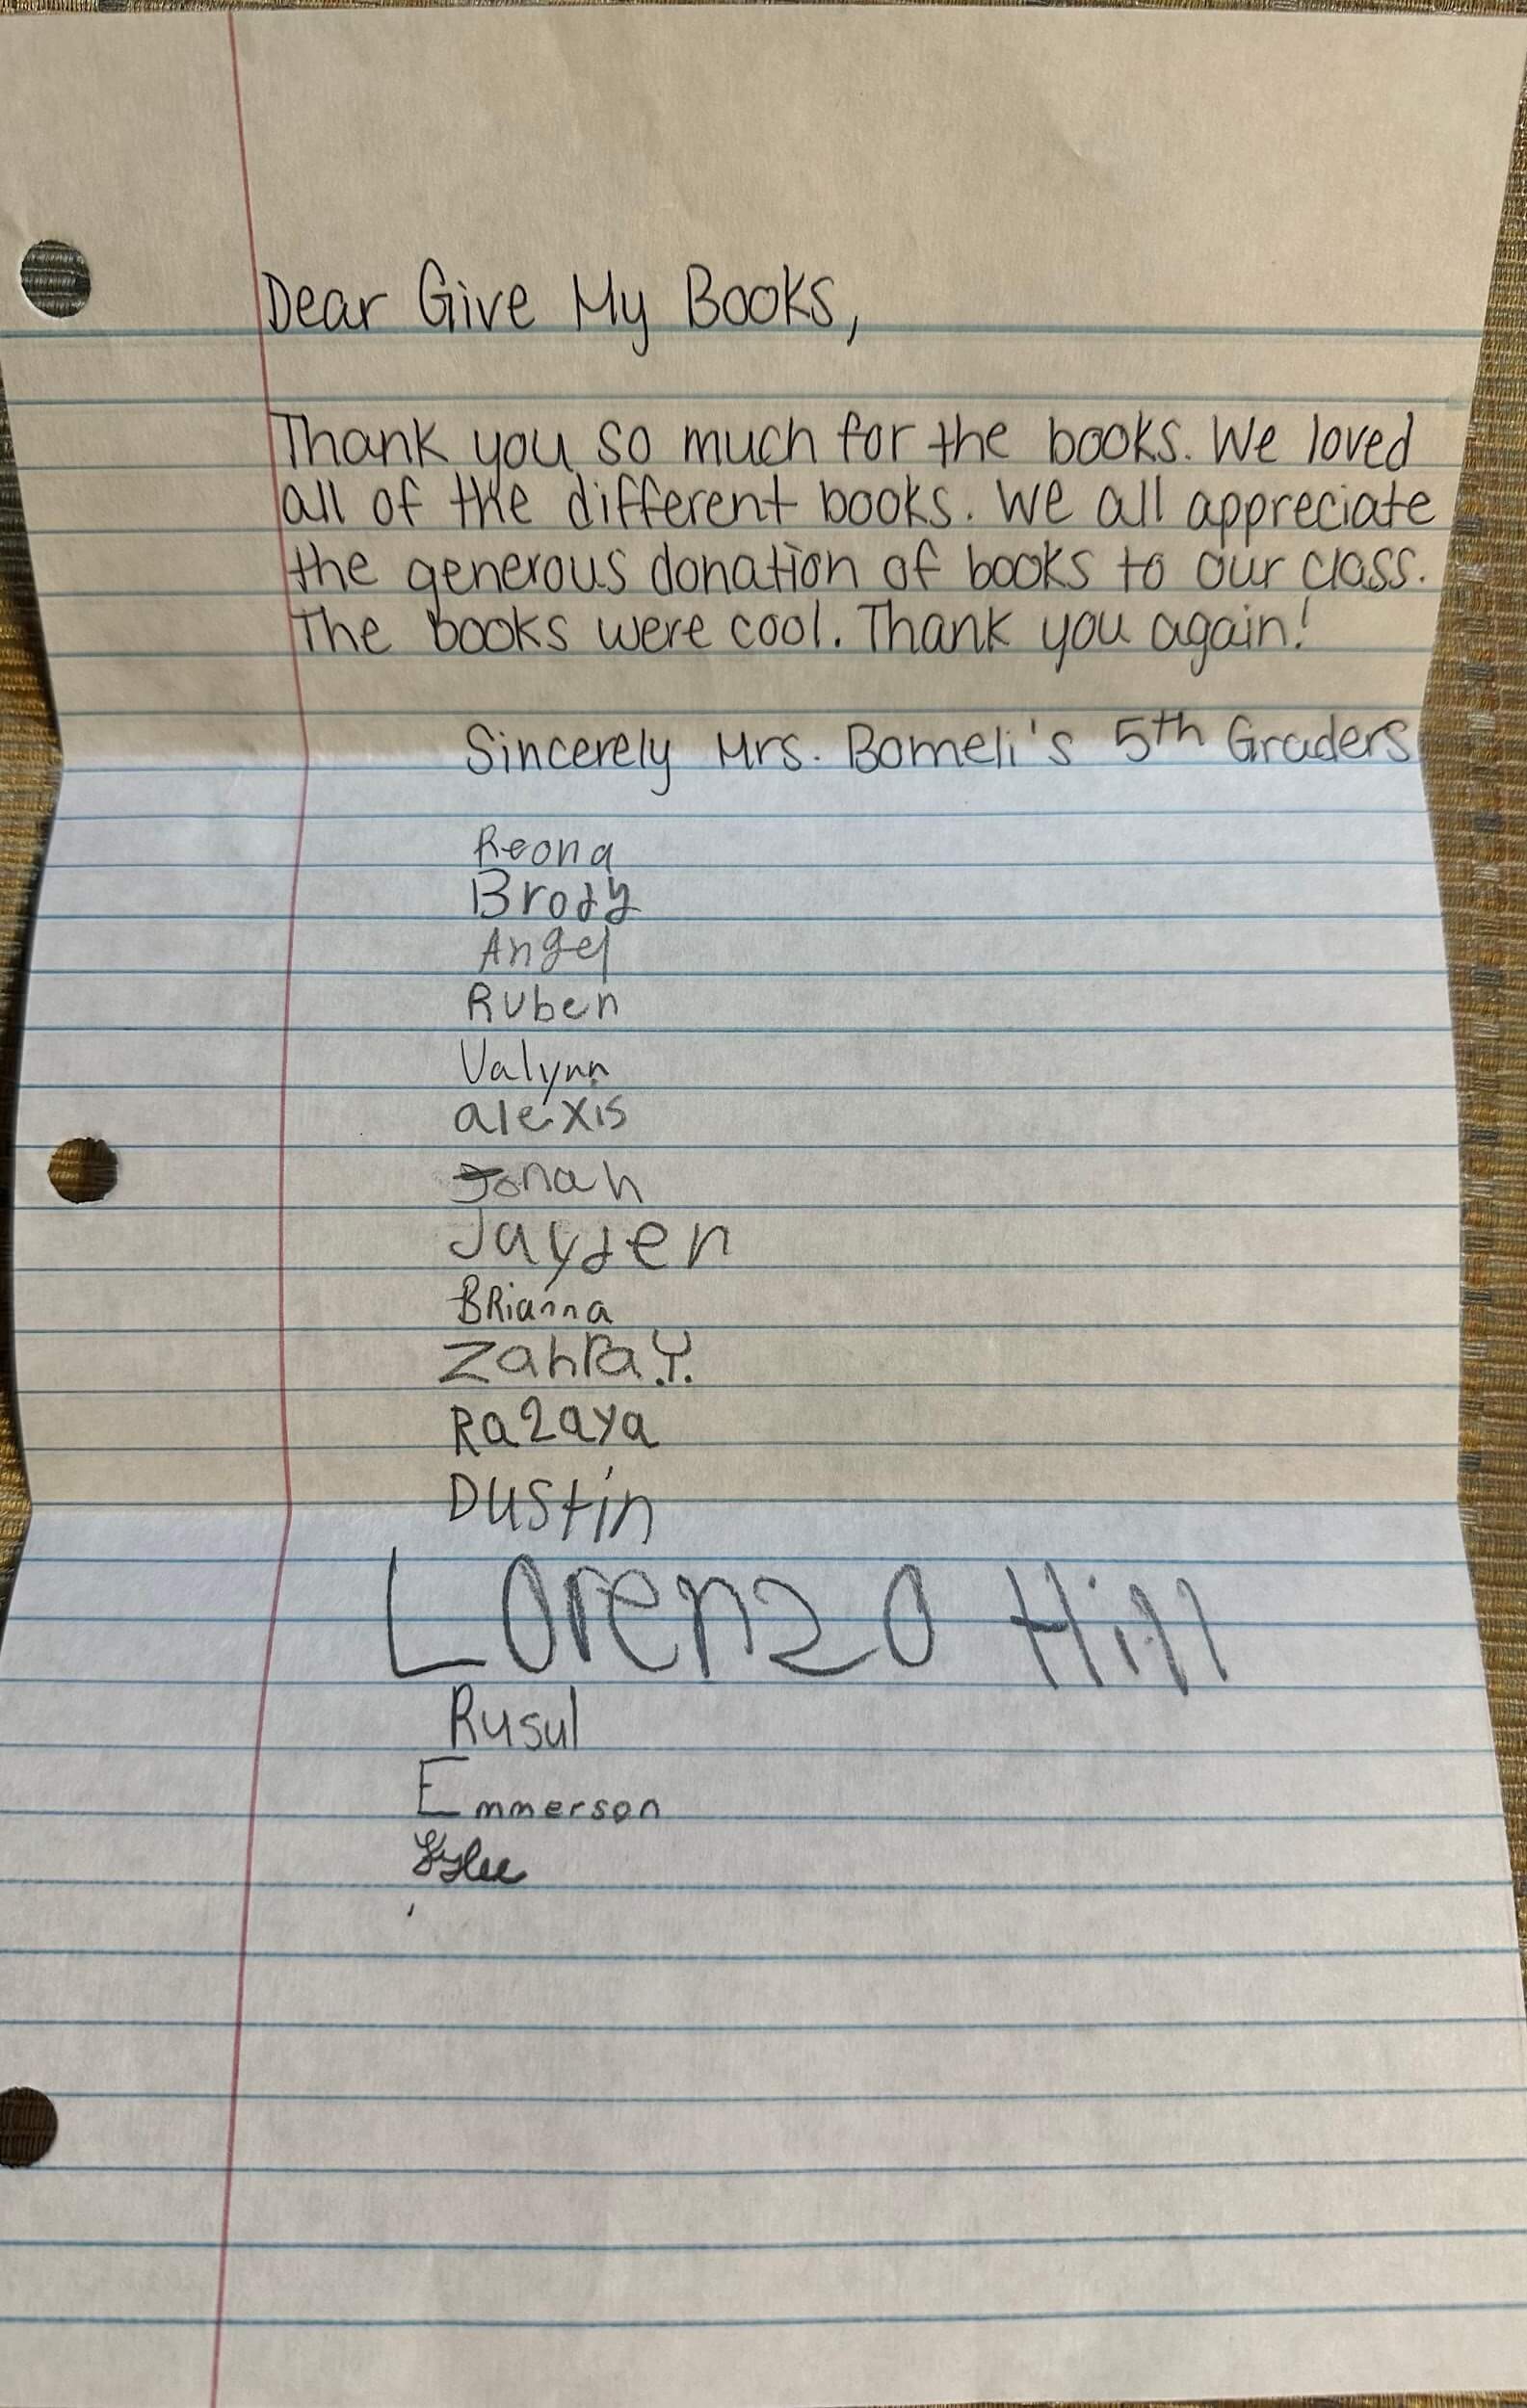 Dear Give My Books,
Thank you so much for the books. We loved
all of the different books. We all appreciate
the generous donation of books to our class.
The books were cool. Thank you again!
Sincerely Mrs. Bomeli's 5th Graders
Reona
Brody
Angel
Ruben
Valynn
alexis
Jonah
Jayden
BRianna
Zahra.Y.
Razaya
Dustin
Lorenzo Hill
Rusul
Emmerson